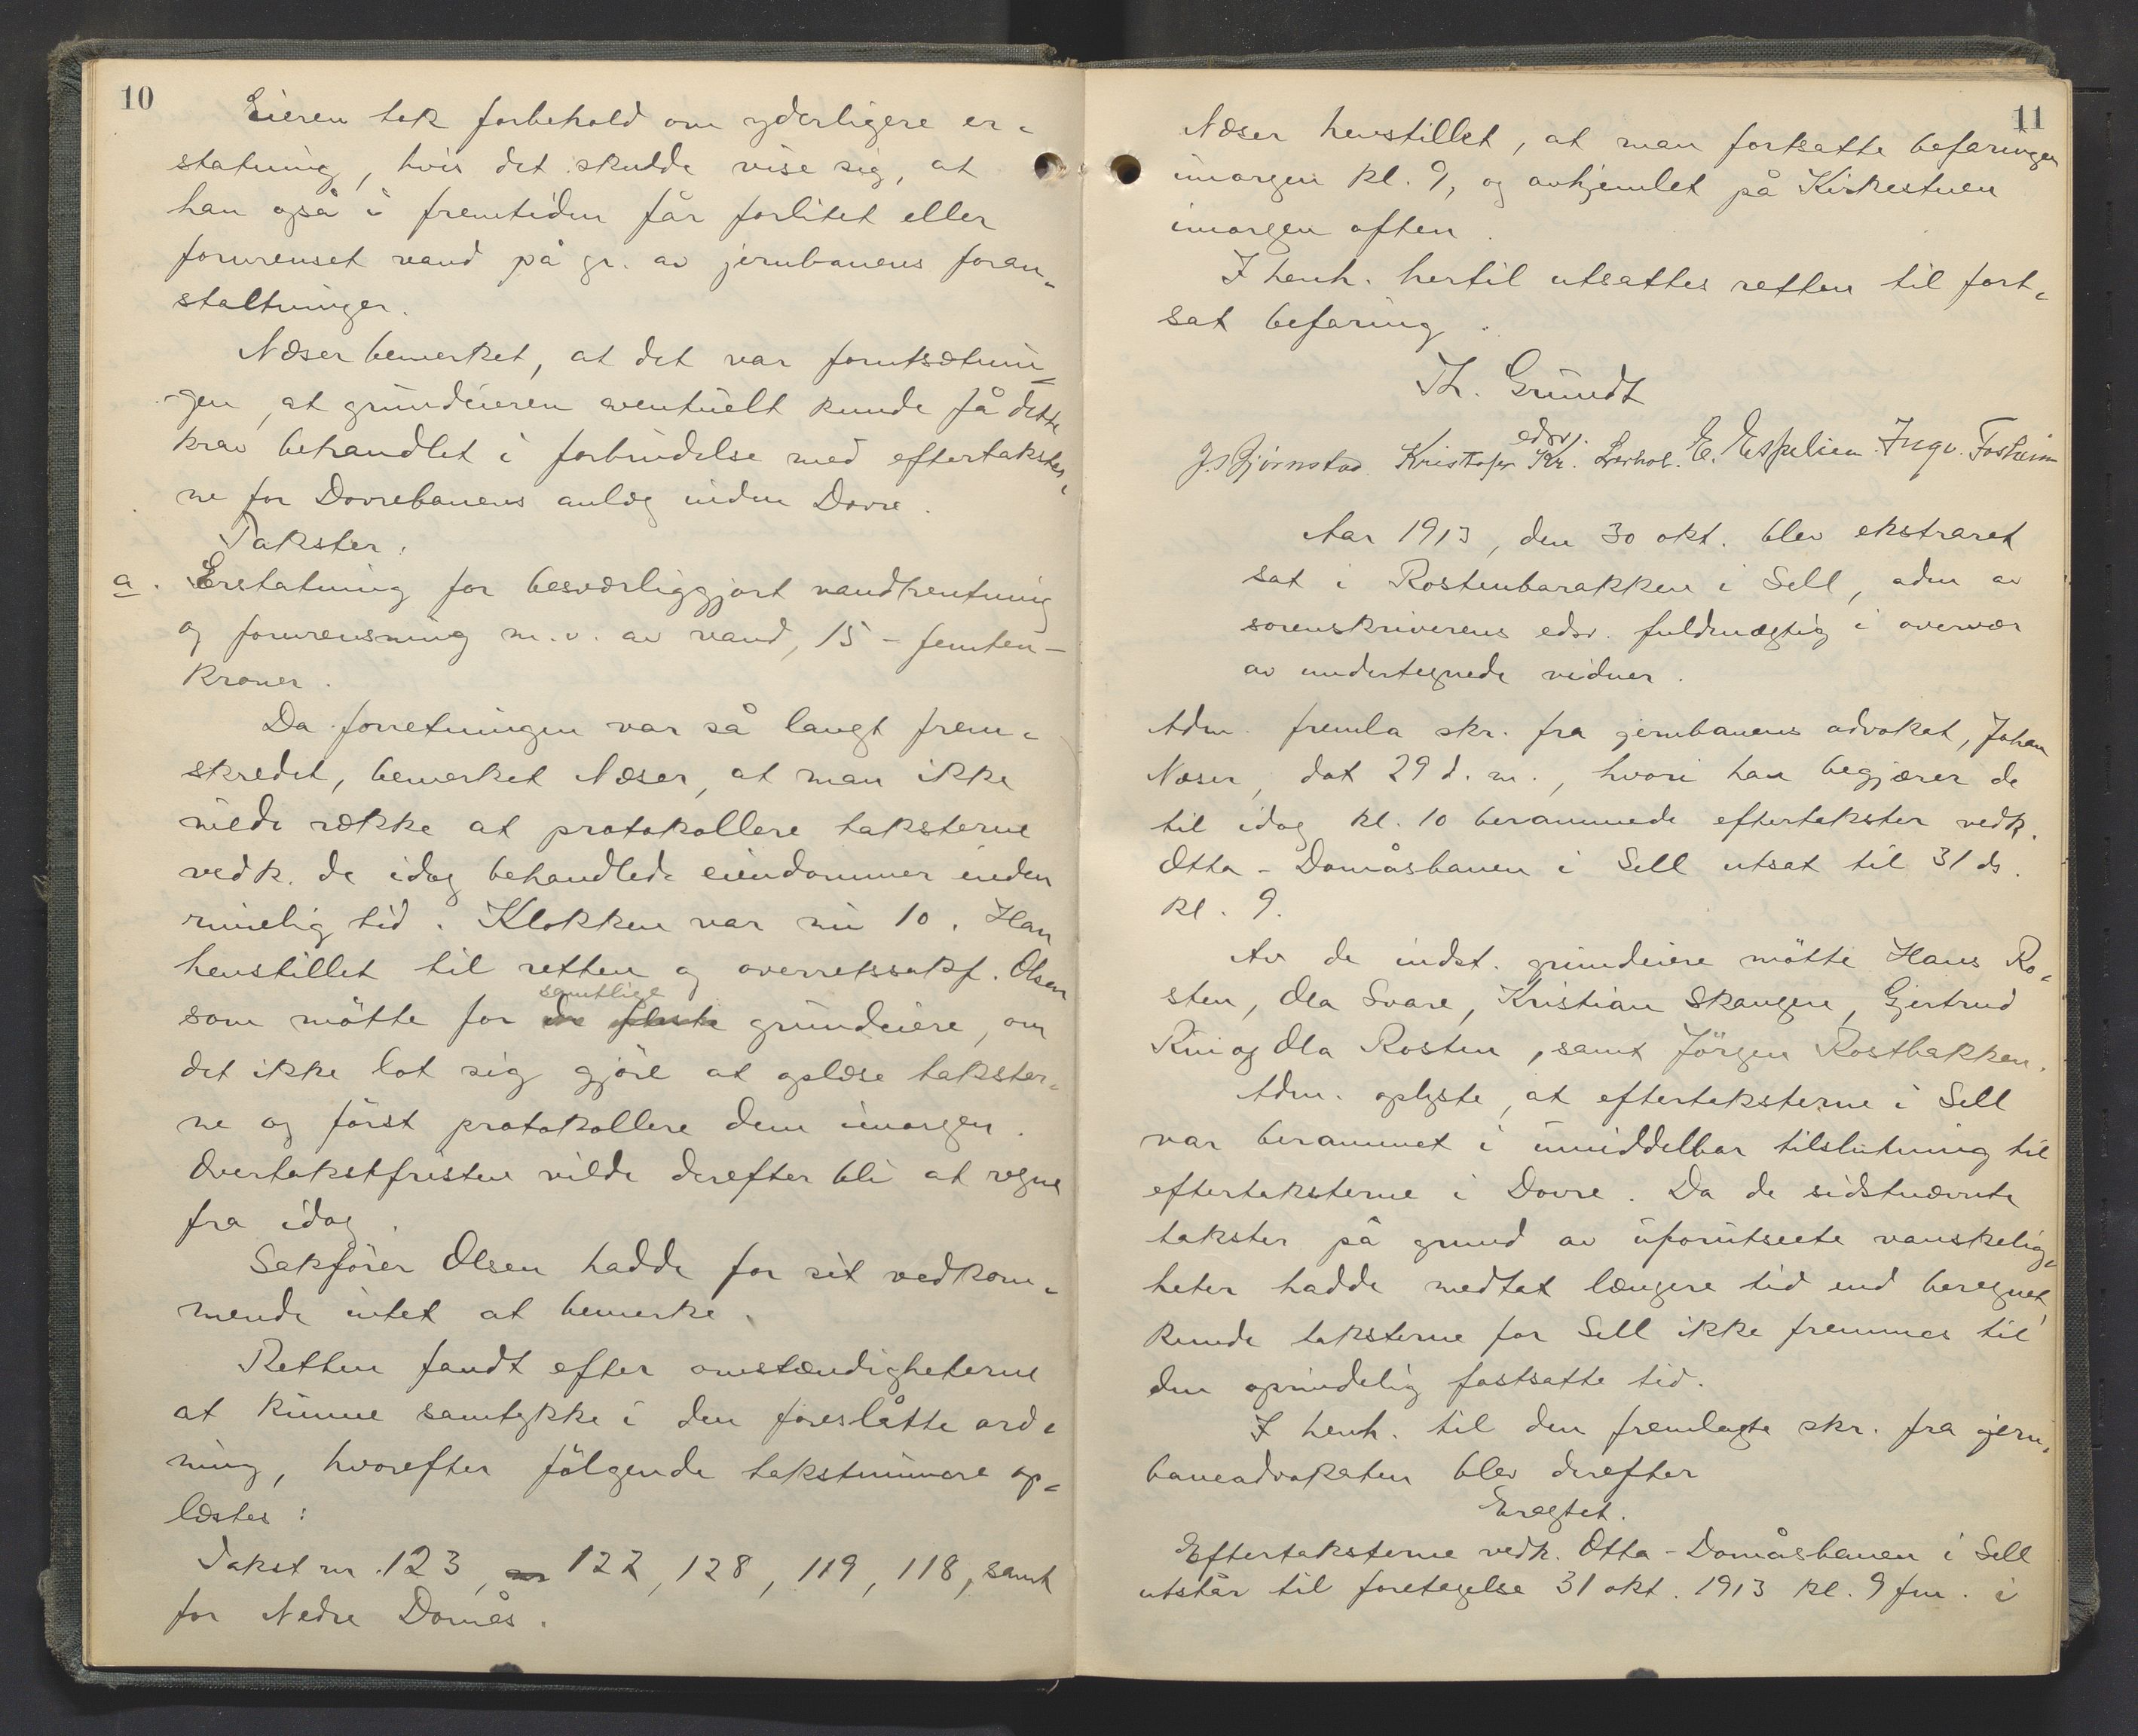 10
Eieren tok forbehold om yderligere er-
statning, hvis det skulde vise sig, at
han også i fremtiden får forlitet eller
forurenset vand på gr. av jernbanens foran-
staltninger.
Næser bemerket, at det var forutsætnin-
gen, at grundeieren eventuelt kunde få dette
krav behandlet i forbindelse med eftertakster-
ne for Dovrebanens anlæg inden Dovre.
Takster:
a. Erstatning for besværliggjort vandhentning
og forurensning m.v. av vand, 15 - femten -
kroner.
Da forretningen var så langt frem-
skredet, bemerket Næser, at man ikke
vilde række at protokollere taksterne
vedk. de idag behandlede eiendommer inden
rimelig tid. Klokken var nu 10. Han
henstillet til retten og overretssakf. Olsen
samtlige
som møtte for de fleste grundeiere, om
det ikke lot sig gjöre at oplæse takster-
ne og först protokollere dem imorgen.
Overtakstfristen vilde derefter bli at regne
fra idag.
Sakförer Olsen hadde for sit vedkom-
mende intet at bemerke.
Retten fandt efter omstændigheterne
at kunne samtykke i den foreslåtte ord-
ning, hvorefter fölgende takstnumere op-
læstes:
Takst nr. 123, nr 122, 128, 119, 118, samt
for Nedre Domås.
11
Næser henstillet, at man fortsatte befaringen
imorgen kl. 9, og avhjemlet på Kirkestuen
imorgen aften.
I henh. hertil utsattes retten til fort-
sat befaring.
Th. Grundt
edsv.
J. Bjørnstad Kristofer Kr. E. Espelien. Ingv. Fosheim
Aar 1913, den 30 okt. blev ekstraret
sat i Rostenbarakken i Sell, adm av
sorenskriverens edsv. fuldmægtig i overvær
av undertegnede vidner.
Adm. fremla skr. fra jernbanens advokat, Johan
Næser, dat 29 d. m., hvori han begjærer de
til idag kl. 10 berammede eftertakster vedk.
Otta - Domåsbanen i Sell utsat til 31 ds.
kl. 9.
Av de indst. grundeiere mötte Hans Ro-
sten, Ola Svare, Kristian Skangen, Gjertrud
Rui og Ola Rosten, samt Jörgen Rostbakken.
Adm. oplyste, at eftertaksterne i Sell
var berammet i umiddelbar tilslutning til
eftertaksterne i Dovre. Da de sidstnævnte
takster på grund av uforutseete vanskelig-
heter hadde medtat længere tid end beregnet,
kunde taksterne for Sell ikke fremmes til
den oprindelig fastsatte tid.
I henh. til den fremlagte skr. fra jern-
baneadvokaten blev derefter
Eragtet.
Eftertaksterne vedk. Otta - Domåsbanen i Sell
utstår til foretagelse 31 okt. 1913 kl. 9 fm. i